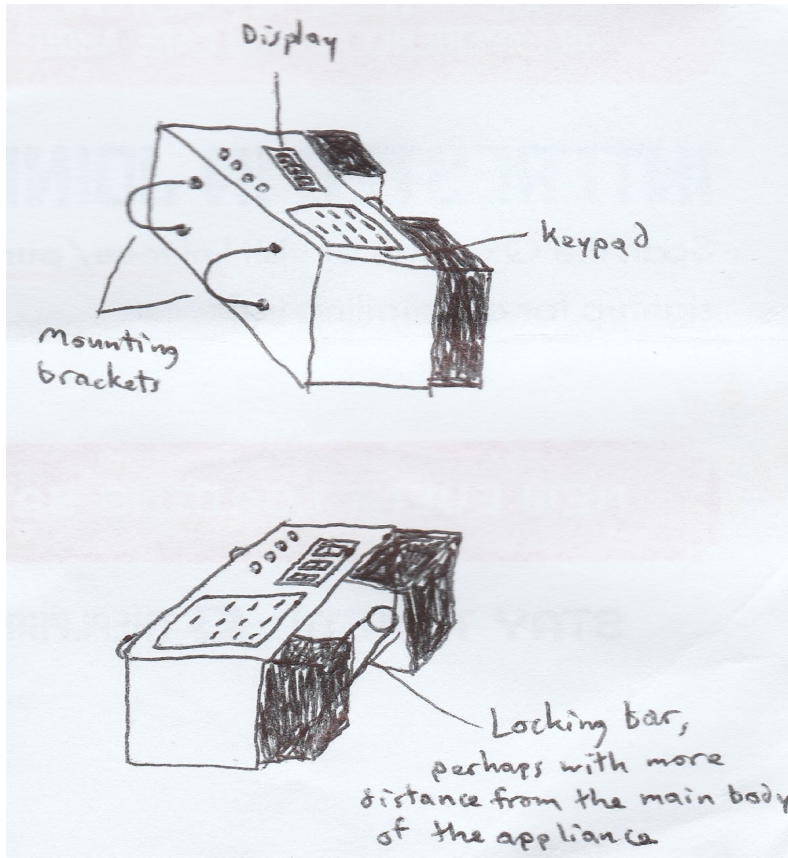 Display
Keypad
Mounting
brackets
Locking bar,
perhaps with more
distance from the main body
of the appliance